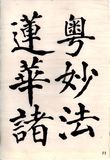 粤妙法
蓮華諸